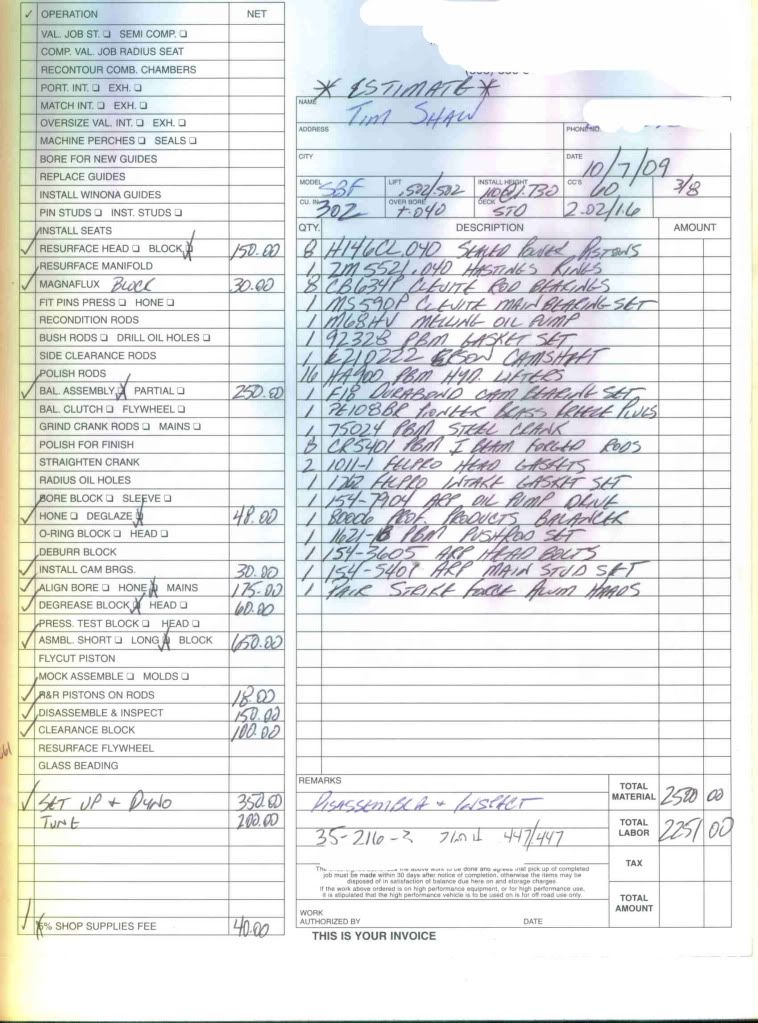 ✓ OPERATION NET
VAL. JOB ST. ☐ SEMI COMP. ☐
COMP. VAL. JOB RADIUS SEAT
RECONTOUR COMB. CHAMBERS
PORT. INT. ☐ EXH. ☐
MATCH INT. ☐ EXH. ☐
OVERSIZE VAL. INT. ☐ EXH. ☐
MACHINE PERCHES ☐ SEALS ☐
BORE FOR NEW GUIDES
REPLACE GUIDES
INSTALL WINONA GUIDES
PIN STUDS ☐ INST. STUDS ☐
INSTALL SEATS
✓ RESURFACE HEAD ☐ BLOCK ☑ 150.00
RESURFACE MANIFOLD
✓ MAGNAFLUX BLOCK 30.00
FIT PINS PRESS ☐ HONE ☐
RECONDITION RODS
BUSH RODS ☐ DRILL OIL HOLES ☐
SIDE CLEARANCE RODS
POLISH RODS
✓ BAL. ASSEMBLY ☑ PARTIAL ☐ 250.00
BAL. CLUTCH ☐ FLYWHEEL ☐
GRIND CRANK RODS ☐ MAINS ☐
POLISH FOR FINISH
STRAIGHTEN CRANK
RADIUS OIL HOLES
BORE BLOCK ☐ SLEEVE ☐
✓ HONE ☐ DEGLAZE ☑ 48.00
O-RING BLOCK ☐ HEAD ☐
DEBURR BLOCK
✓ INSTALL CAM BRGS. 30.00
✓ ALIGN BORE ☐ HONE ☑ MAINS 175.00
✓ DEGREASE BLOCK ☑ HEAD ☐ 60.00
PRESS. TEST BLOCK ☐ HEAD ☐
✓ ASMBL. SHORT ☐ LONG ☑ BLOCK 650.00
FLYCUT PISTON
MOCK ASSEMBLE ☐ MOLDS ☐
✓ R&R PISTONS ON RODS 18.00
✓ DISASSEMBLE & INSPECT 150.00
✓ CLEARANCE BLOCK 100.00
RESURFACE FLYWHEEL
GLASS BEADING
✓ SET UP + DYNO 350.00
TUNE 200.00
✓ % SHOP SUPPLIES FEE 40.00
* ESTIMATE *
NAME TIM SHAW
ADDRESS PHONE NO.
CITY DATE 10/7/09
MODEL SBF LIFT .502/.502 INSTALL HEIGHT 1.730 CC'S 60 3/8
CU. IN. 302 OVER BORE +.040 DECK STD 2.02/1.6
QTY. DESCRIPTION AMOUNT
8 H146CL.040 SEALED POWER PISTONS
1 2M5521.040 HASTINGS RINGS
8 CB634P CLEVITE ROD BEARINGS
1 MS590P CLEVITE MAIN BEARING SET
1 M68HV MELLING OIL PUMP
1 92328 PBM GASKET SET
1 E210222 ELSON CAMSHAFT
16 HA900 PBM HYD. LIFTERS
1 F18 DURABOND CAM BEARING SET
1 PE108BR PIONEER BRASS FREEZE PLUGS
1 75024 PBM STEEL CRANK
8 CR5401 PBM I BEAM FORGED RODS
2 1011-1 FELPRO HEAD GASKETS
1 1262 FELPRO INTAKE GASKET SET
1 154-7904 ARP OIL PUMP DRIVE
1 80006 PROF. PRODUCTS BALANCER
1 PBM PUSHROD SET
1 154-3605 ARP HEAD BOLTS
1 154-5401 ARP MAIN STUD SET
1 PAIR STRIKE FORCE ALUM HEADS
REMARKS
DISASSEMBLE + INSPECT
35-216-3 447/447
TOTAL MATERIAL 2580 00
TOTAL LABOR 2251 00
TAX
TOTAL AMOUNT
the above work to be done and agrees that pick up of completed
job must be made within 30 days after notice of completion, otherwise the items may be
disposed of in satisfaction of balance due here on and storage charges.
If the work above ordered is on high performance equipment, or for high performance use,
it is stipulated that the high performance vehicle is to be used on is for off road use only.
WORK AUTHORIZED BY DATE
THIS IS YOUR INVOICE